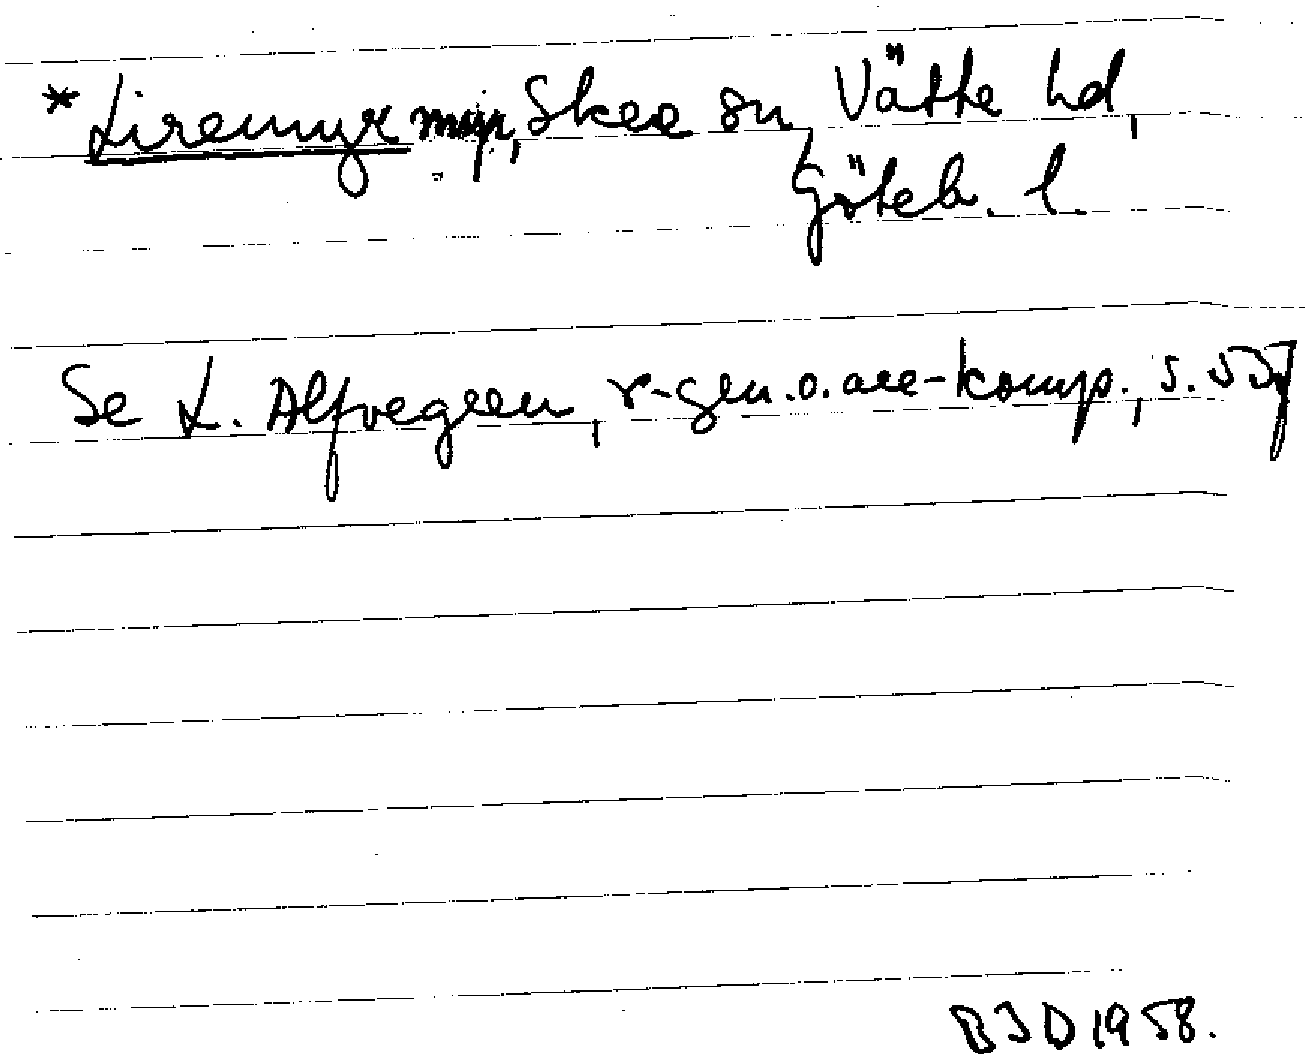 * Liremyr myr, Skee sn, Vätte hd,
Göteb. l.
Se L. Alfvegren, r-gen. o. are-komp., s.
BJD 1958.